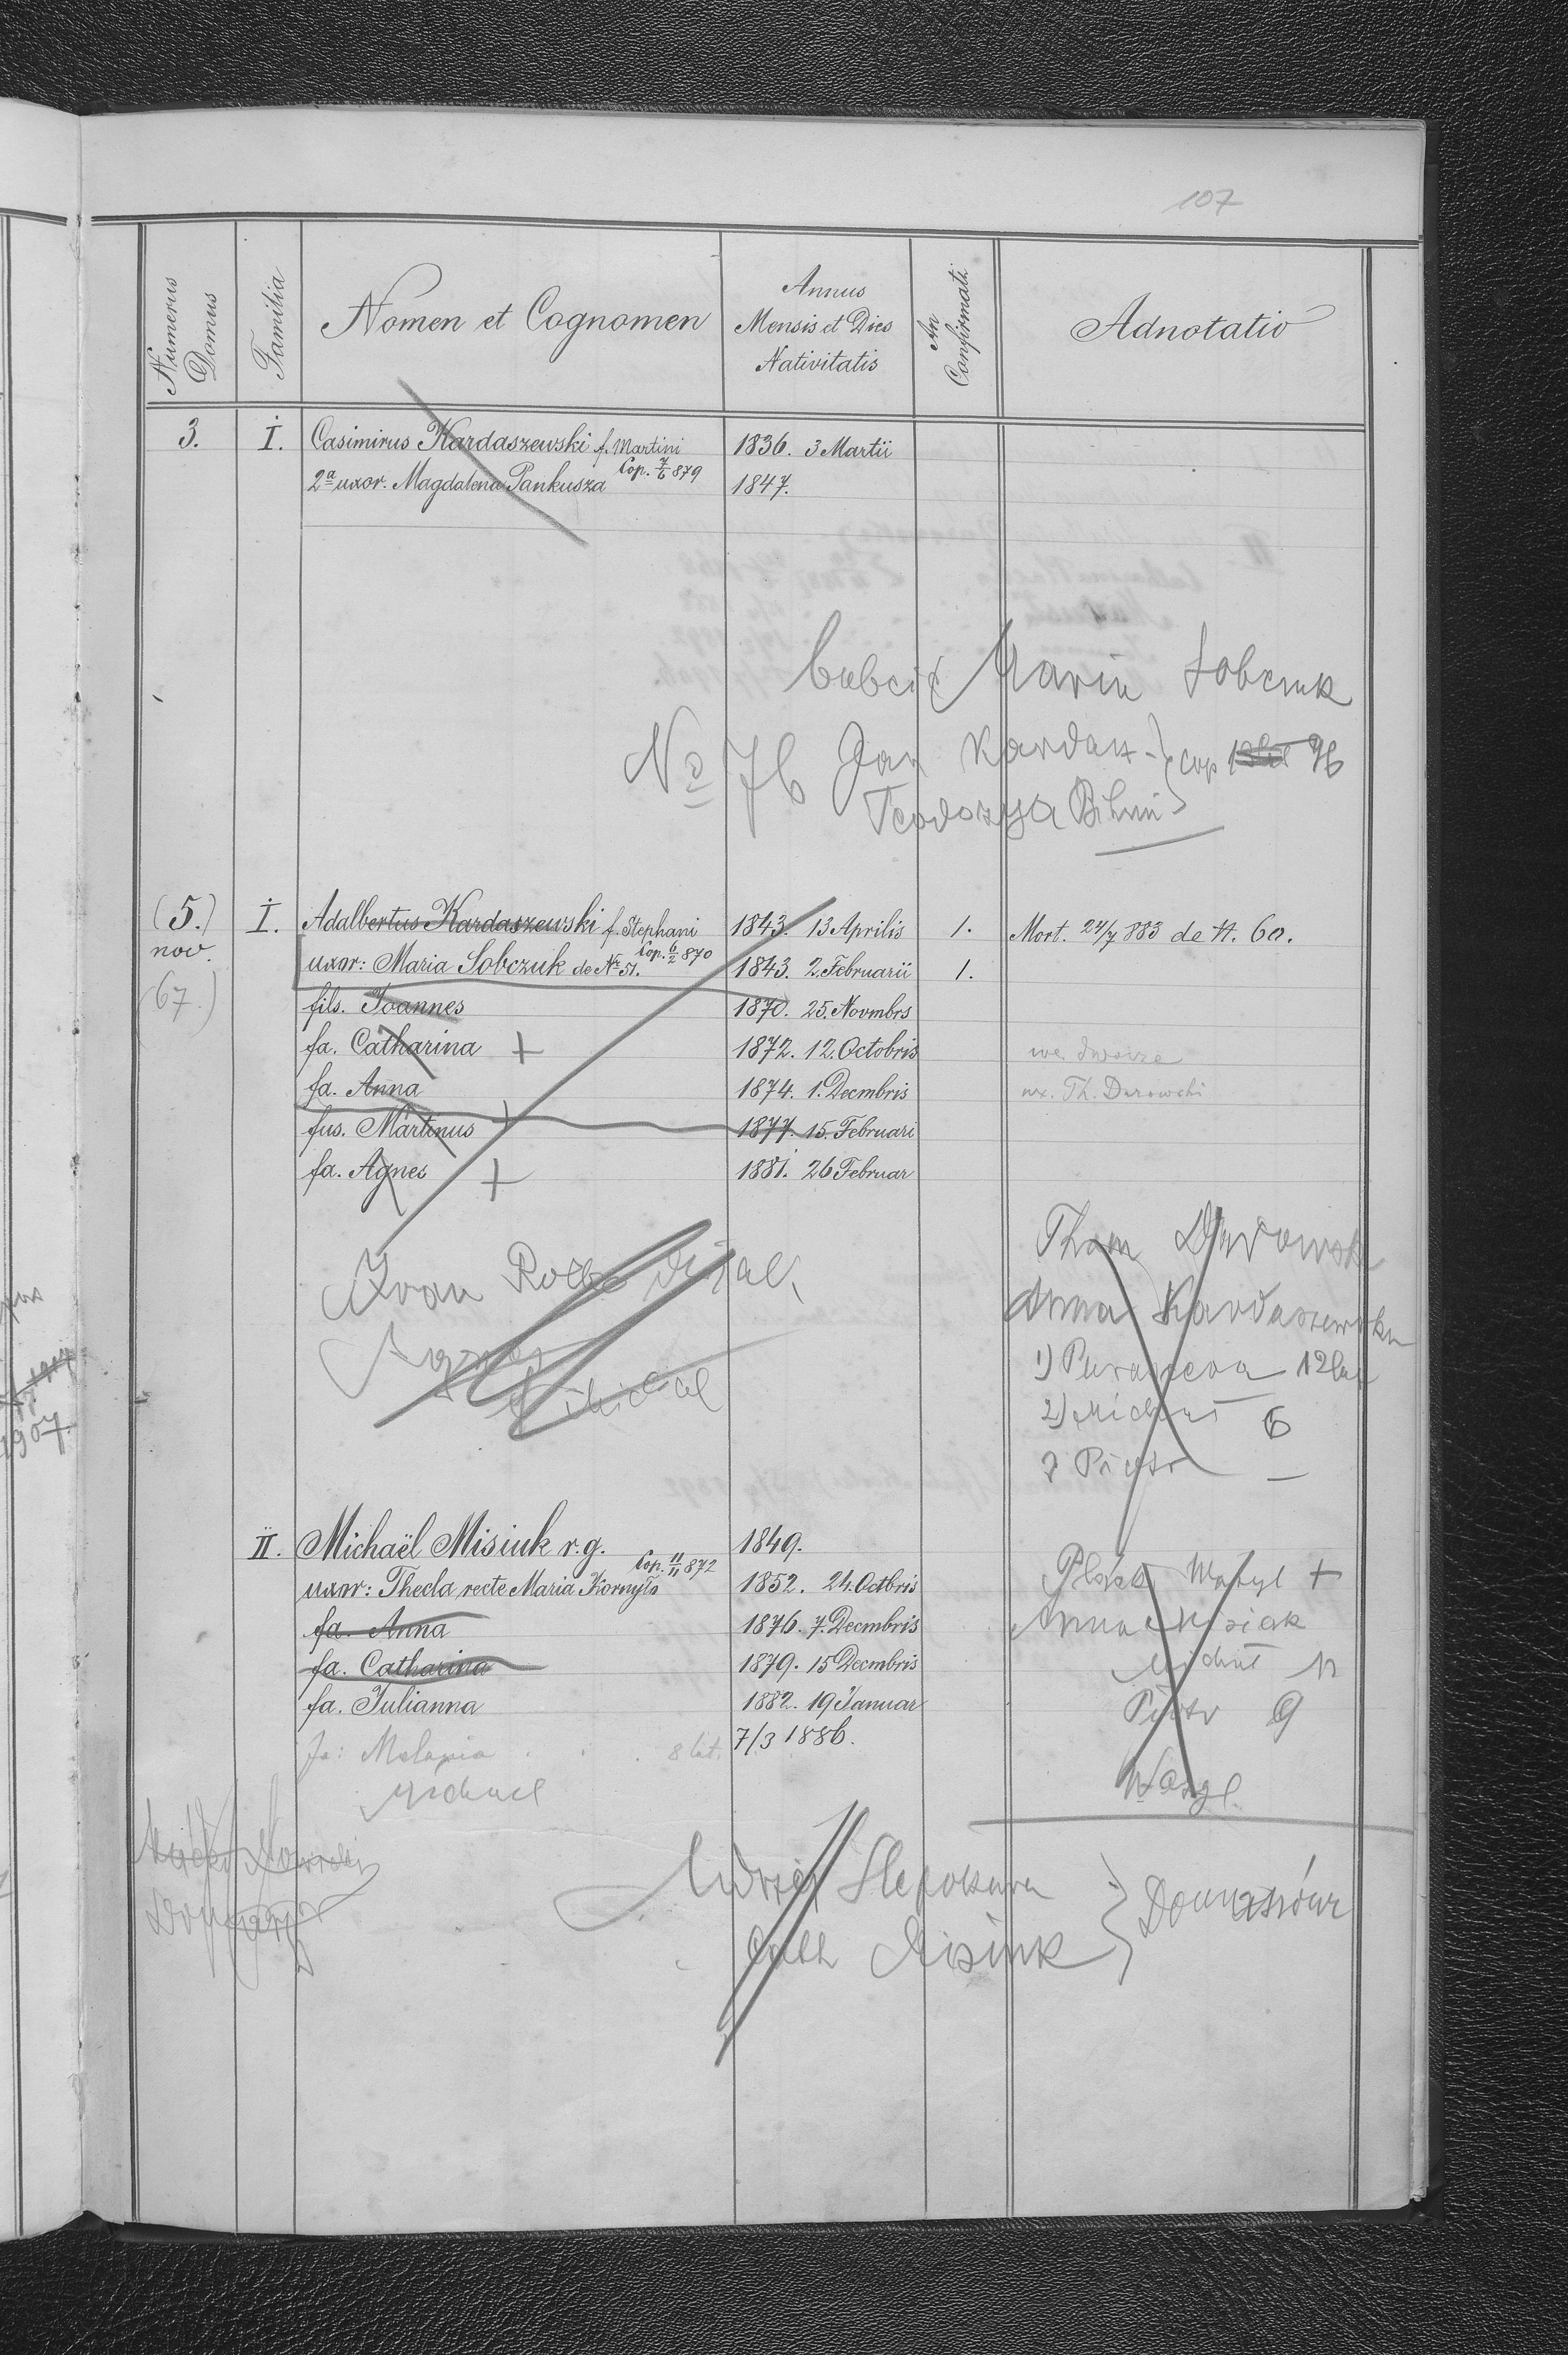 107
Numerus Domus
Familia
Nomen et Cognomen
Annus Mensis et Dies Nativitatis
An Confirmati
Adnotatio
3. I. Casimirus Kardaszewski f. Martini 1836. 3 Martii
Cop. 7/6 879
2a uxor. Magdalena Pankusza 1847.
Maria Sobczuk
No 76 Jan Kardasz
Cop 96
Teodozya
(5.) I. Adalbertus Kardaszewski f. Stephani 1843. 13 Aprilis 1. Mort. 24/7 883 de H. 60.
nov. Cop. 6/2 870
uxor: Maria Sobczuk de Nr 51. 1843. 2. Februarii 1.
(67.) fils. Joannes 1870. 25. Novmbrs
fa. Catharina + 1872. 12. Octobris we dworze
fa. Anna 1874. 1. Decmbris ux. Th. Darowski
fus. Martinus 1877. 15. Februari
fa. Agnes + 1881. 26 Februar
Agnes
Michael
Anna Kardaszewska
1) 12 lat
2) Michał 6
3 Piotr –
II. Michaël Misiuk r. g. 1849.
Cop. 11/11 872
uxor: Thecla recte Maria Kornyło 1852. 24. Octbris
fa. Anna 1876. 7. Decmbris
fa. Catharina 1879. 15 Decmbris
fa. Julianna 1882. 19 Januar
fa: Melania . . . 8 lat. 7/3 1886.
Michael
Wasyl +
Anna Misiak
Michał 12
Piotr 9
Wasyl
Andrzej
Cath Misiuk
1907.